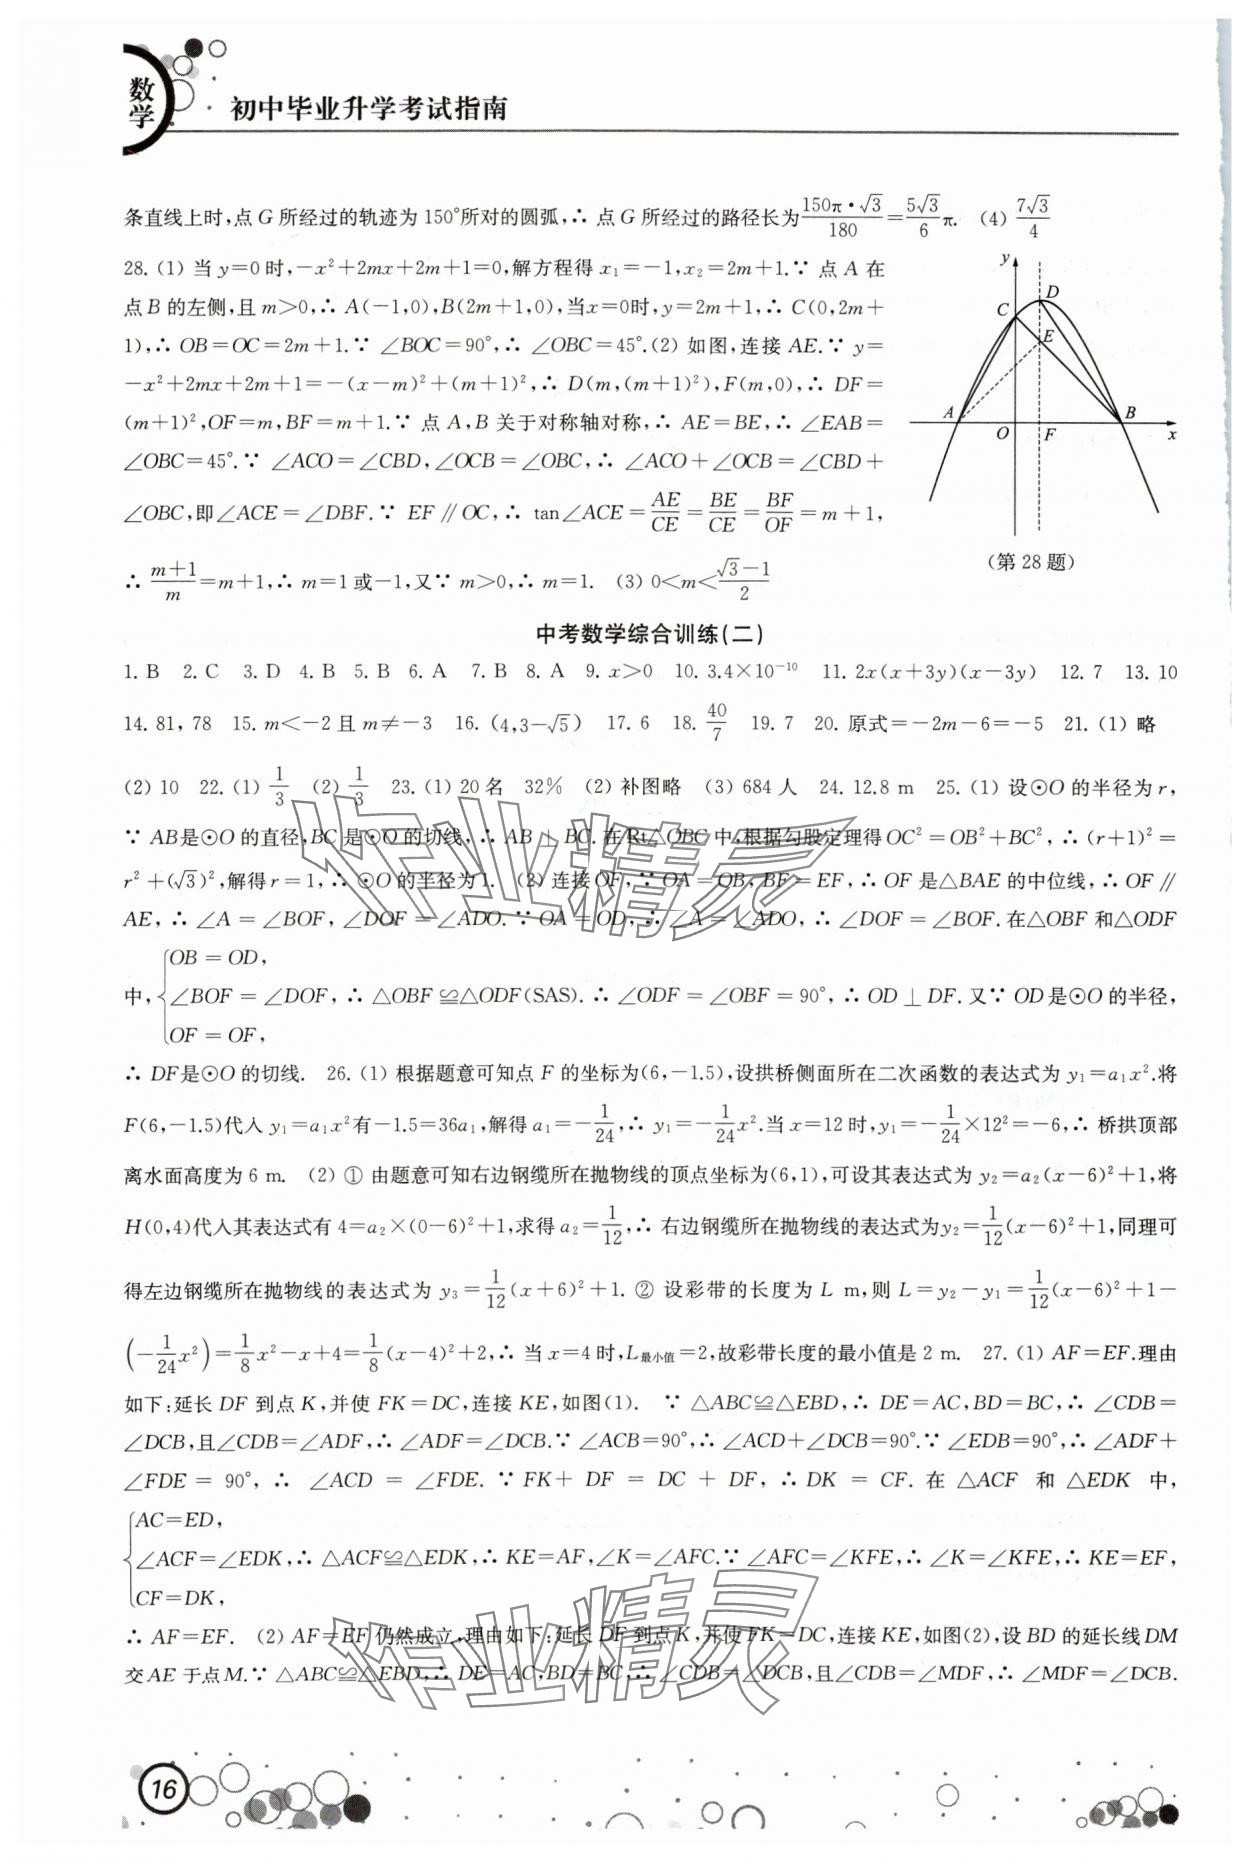 数学
初中毕业升学考试指南
条直线上时,点 G 所经过的轨迹为 150°所对的圆弧,∴ 点 G 所经过的路径长为 150π·√3/180=5√3/6 π. (4) 7√3/4
28. (1) 当 y=0 时,-x²+2mx+2m+1=0,解方程得 x₁=-1,x₂=2m+1.∵ 点 A 在
点 B 的左侧,且 m>0,∴ A(-1,0),B(2m+1,0),当x=0时,y=2m+1,∴ C(0,2m+
1),∴ OB=OC=2m+1.∵ ∠BOC=90°,∴ ∠OBC=45°.(2) 如图,连接 AE.∵ y=
-x²+2mx+2m+1=-(x-m)²+(m+1)²,∴ D(m,(m+1)²),F(m,0),∴ DF=
(m+1)²,OF=m,BF=m+1.∵ 点 A,B 关于对称轴对称,∴ AE=BE,∴ ∠EAB=
∠OBC=45°.∵ ∠ACO=∠CBD,∠OCB=∠OBC,∴ ∠ACO+∠OCB=∠CBD+
∠OBC,即∠ACE=∠DBF.∵ EF∥OC,∴ tan∠ACE=AE/CE=BE/CE=BF/OF=m+1,
∴ (m+1)/m=m+1,∴ m=1 或-1,又∵ m>0,∴ m=1. (3) 0<m<(√3-1)/2
y
D
C
E
A
B
O
F
x
(第 28 题)
中考数学综合训练(二)
1. B 2. C 3. D 4. B 5. B 6. A 7. B 8. A 9. x>0 10. 3.4×10⁻¹⁰ 11. 2x(x+3y)(x-3y) 12. 7 13. 10
14. 81, 78 15. m<-2 且 m≠-3 16. (4,3-√5) 17. 6 18. 40/7 19. 7 20. 原式=-2m-6=-5 21. (1) 略
(2) 10 22. (1) 1/3 (2) 1/3 23. (1) 20 名 32% (2) 补图略 (3) 684 人 24. 12.8 m 25. (1) 设⊙O 的半径为 r,
∵ AB是⊙O 的直径,BC 是⊙O 的切线,∴ AB⊥BC.在 Rt△OBC 中,根据勾股定理得 OC²=OB²+BC²,∴ (r+1)²=
r²+(√3)²,解得 r=1,∴ ⊙O 的半径为 1. (2) 连接 OF,∵ OA=OB,BF=EF,∴ OF 是△BAE 的中位线,∴ OF∥
AE,∴ ∠A=∠BOF,∠DOF=∠ADO.∵ OA=OD,∴ ∠A=∠ADO,∴ ∠DOF=∠BOF.在△OBF 和△ODF
中,{OB=OD,
∠BOF=∠DOF,∴ △OBF≌△ODF(SAS).∴ ∠ODF=∠OBF=90°,∴ OD⊥DF.又∵ OD是⊙O 的半径,
OF=OF,
∴ DF是⊙O 的切线. 26. (1) 根据题意可知点 F 的坐标为(6,-1.5),设拱桥侧面所在二次函数的表达式为 y₁=a₁x².将
F(6,-1.5)代入 y₁=a₁x²有-1.5=36a₁,解得 a₁=-1/24,∴ y₁=-1/24 x².当 x=12 时,y₁=-1/24×12²=-6,∴ 桥拱顶部
离水面高度为 6 m. (2) ① 由题意可知右边钢缆所在抛物线的顶点坐标为(6,1),可设其表达式为 y₂=a₂(x-6)²+1,将
H(0,4)代入其表达式有 4=a₂×(0-6)²+1,求得 a₂=1/12,∴ 右边钢缆所在抛物线的表达式为y₂=1/12(x-6)²+1,同理可
得左边钢缆所在抛物线的表达式为 y₃=1/12(x+6)²+1. ② 设彩带的长度为 L m,则 L=y₂-y₁=1/12(x-6)²+1-
(-1/24 x²)=1/8 x²-x+4=1/8(x-4)²+2,∴ 当 x=4 时,L最小值=2,故彩带长度的最小值是 2 m. 27. (1) AF=EF.理由
如下:延长 DF 到点 K,并使 FK=DC,连接 KE,如图(1). ∵ △ABC≌△EBD,∴ DE=AC,BD=BC,∴ ∠CDB=
∠DCB,且∠CDB=∠ADF,∴ ∠ADF=∠DCB.∵ ∠ACB=90°,∴ ∠ACD+∠DCB=90°.∵ ∠EDB=90°,∴ ∠ADF+
∠FDE=90°,∴ ∠ACD=∠FDE.∵ FK+DF=DC+DF,∴ DK=CF.在 △ACF 和 △EDK 中,
{AC=ED,
∠ACF=∠EDK,∴ △ACF≌△EDK,∴ KE=AF,∠K=∠AFC.∵ ∠AFC=∠KFE,∴ ∠K=∠KFE,∴ KE=EF,
CF=DK,
∴ AF=EF. (2) AF=EF 仍然成立,理由如下:延长 DF 到点 K,并使 FK=DC,连接 KE,如图(2),设 BD 的延长线 DM
交 AE 于点 M.∵ △ABC≌△EBD,∴ DE=AC,BD=BC,∴ ∠CDB=∠DCB,且∠CDB=∠MDF,∴ ∠MDF=∠DCB.
作业精灵
作业精灵
16